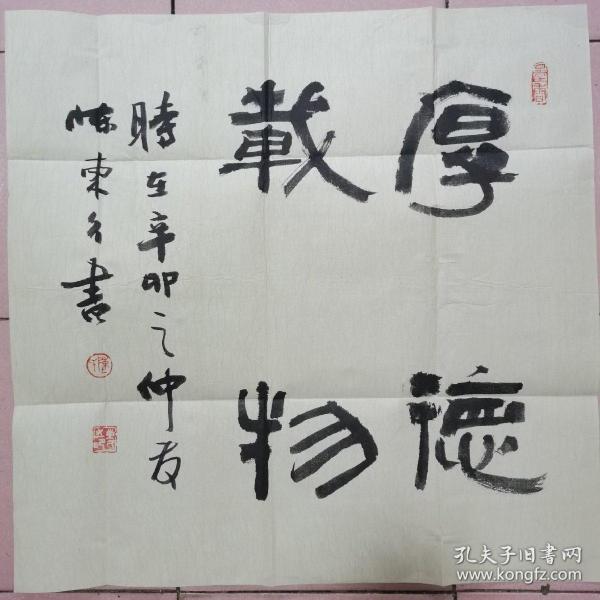 厚德
載物
時在辛卯之仲夏
陳東方書
孔夫子旧书网
www.kongfz.com